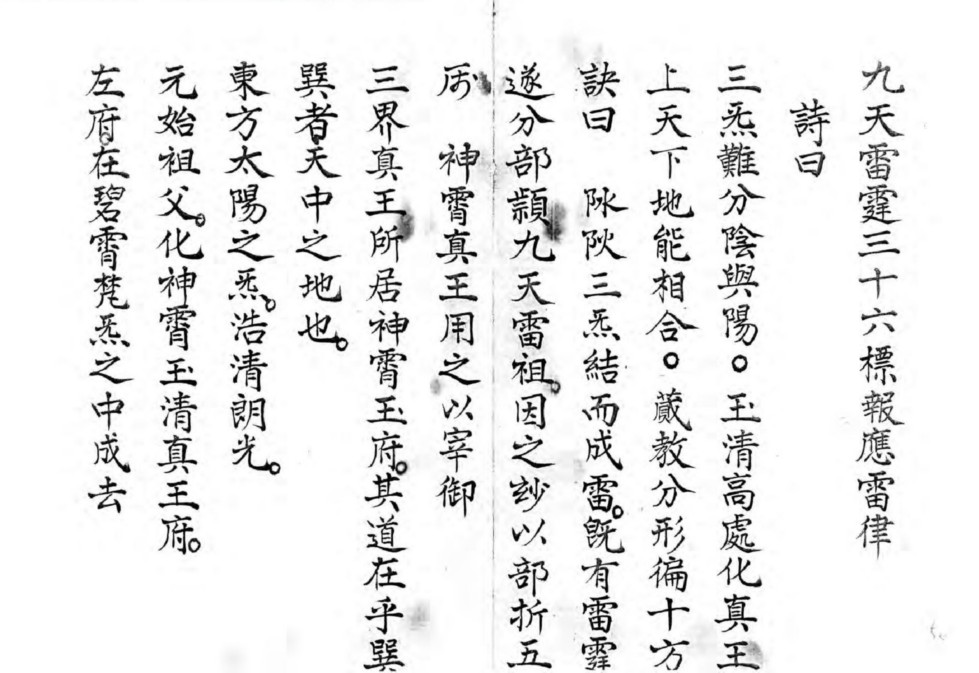 九天雷霆三十六標報應雷律
詩曰
三炁難分陰與陽。玉清高處化真王
上天下地能相合。蔵教分形徧十方
訣曰　阦阥三炁結而成雷。既有雷霆
遂分部顈九天雷祖。因之玅以部折五
神霄真王用之以宰御
三界真王所居神霄玉府。其道在乎巽
巽者天中之地也。
東方太陽之炁。浩清朗光。
元始祖父。化神霄玉清真王府。
左府在碧霄梵炁之中成去